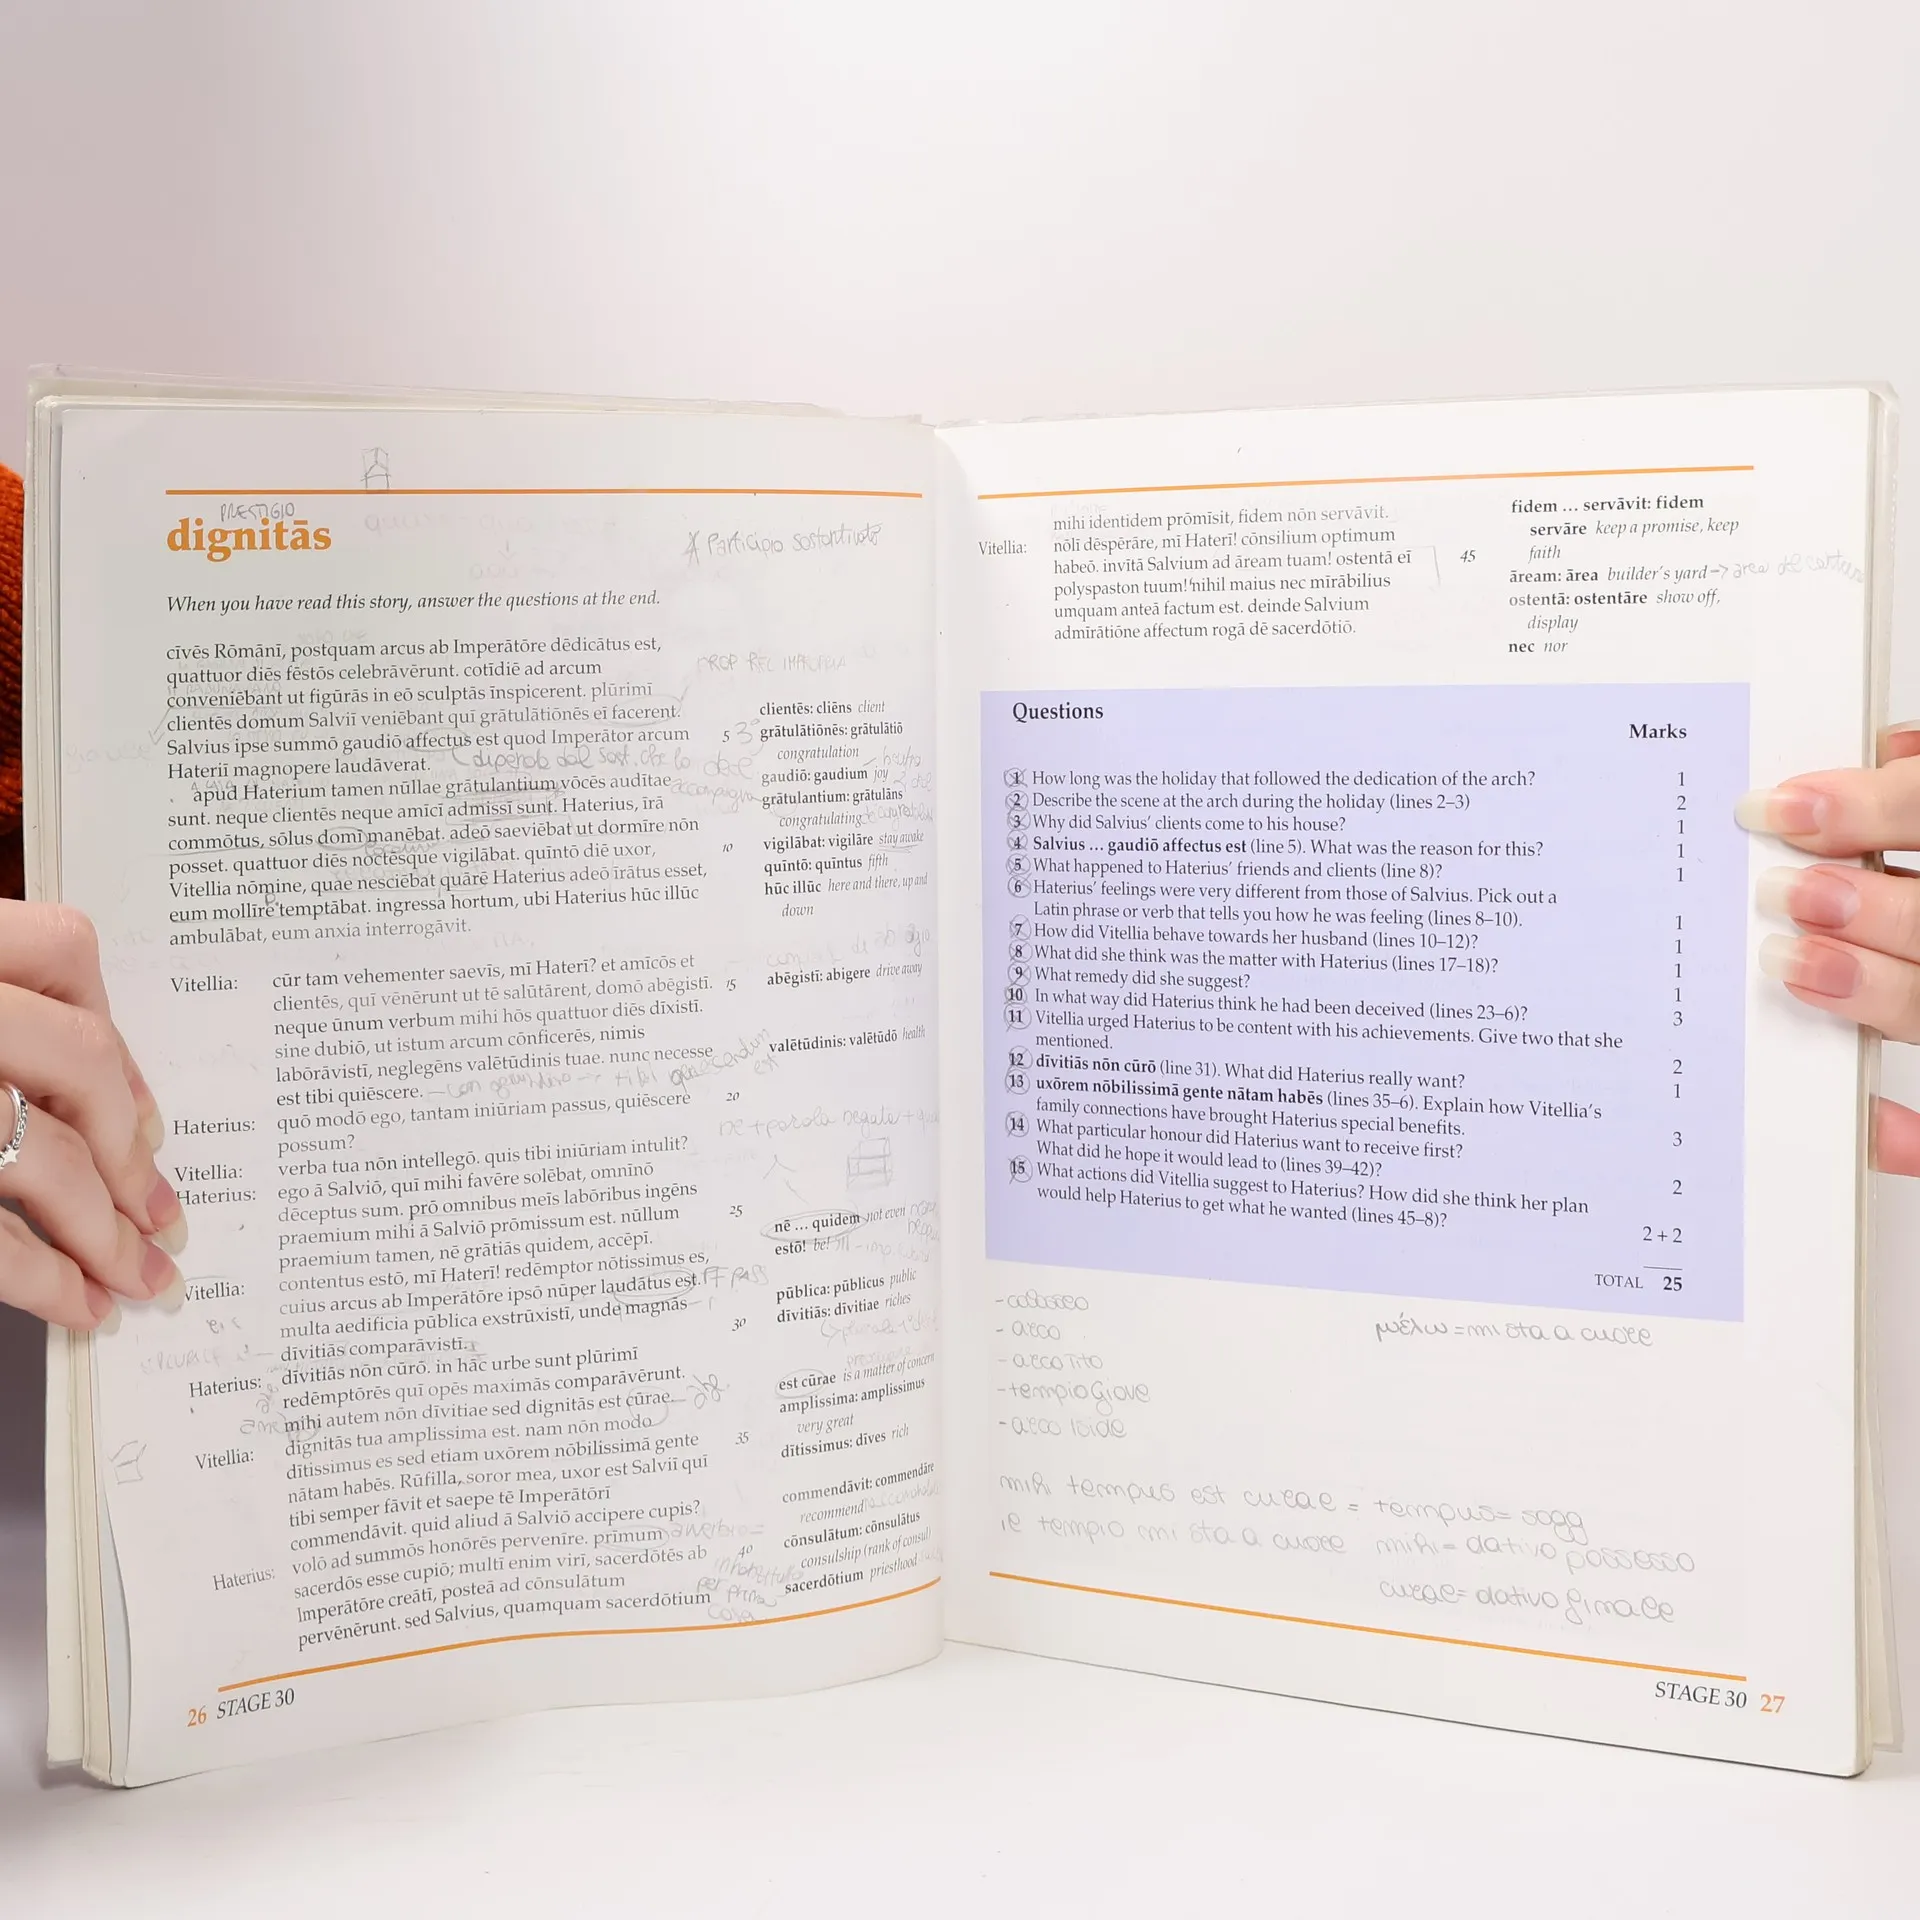 PRESTIGIO
dignitās
* Participio sostantivato
When you have read this story, answer the questions at the end.
cīvēs Rōmānī, postquam arcus ab Imperātōre dēdicātus est,
quattuor diēs fēstōs celebrāvērunt. cotīdiē ad arcum
conveniēbant ut figūrās in eō sculptās īnspicerent. plūrimī
clientēs domum Salviī veniēbant quī grātulātiōnēs eī facerent.
Salvius ipse summō gaudiō affectus est quod Imperātor arcum 5
Hateriī magnopere laudāverat.
apud Haterium tamen nūllae grātulantium vōcēs audītae
sunt. neque clientēs neque amīcī admissī sunt. Haterius, īrā
commōtus, sōlus domī manēbat. adeō saeviēbat ut dormīre nōn
posset. quattuor diēs noctēsque vigilābat. quīntō diē uxor, 10
Vitellia nōmine, quae nesciēbat quārē Haterius adeō īrātus esset,
eum mollīre temptābat. ingressa hortum, ubi Haterius hūc illūc
ambulābat, eum anxia interrogāvit.
Vitellia: cūr tam vehementer saevīs, mī Haterī? et amīcōs et
clientēs, quī vēnērunt ut tē salūtārent, domō abēgistī. 15
neque ūnum verbum mihi hōs quattuor diēs dīxistī.
sine dubiō, ut istum arcum cōnficerēs, nimis
labōrāvistī, neglegēns valētūdinis tuae. nunc necesse
est tibi quiēscere.
Haterius: quō modō ego, tantam iniūriam passus, quiēscere 20
possum?
Vitellia: verba tua nōn intellegō. quis tibi iniūriam intulit?
Haterius: ego ā Salviō, quī mihi favēre solēbat, omnīnō
dēceptus sum. prō omnibus meīs labōribus ingēns
praemium mihi ā Salviō prōmissum est. nūllum 25
praemium tamen, nē grātiās quidem, accēpī.
Vitellia: contentus estō, mī Haterī! redēmptor nōtissimus es,
cuius arcus ab Imperātōre ipsō nūper laudātus est.
multa aedificia pūblica exstrūxistī, unde magnās
dīvitiās comparāvistī. 30
Haterius: dīvitiās nōn cūrō. in hāc urbe sunt plūrimī
redēmptōrēs quī opēs maximās comparāvērunt.
mihi autem nōn dīvitiae sed dignitās est cūrae.
Vitellia: dignitās tua amplissima est. nam nōn modo
dītissimus es sed etiam uxōrem nōbilissimā gente 35
nātam habēs. Rūfilla, soror mea, uxor est Salviī quī
tibi semper fāvit et saepe tē Imperātōrī
commendāvit. quid aliud ā Salviō accipere cupis?
Haterius: volō ad summōs honōrēs pervenīre. prīmum
sacerdōs esse cupiō; multī enim virī, sacerdōtēs ab 40
Imperātōre creātī, posteā ad cōnsulātum
pervēnērunt. sed Salvius, quamquam sacerdōtium
clientēs: cliēns client
grātulātiōnēs: grātulātiō
congratulation
gaudiō: gaudium joy
grātulantium: grātulāns
congratulating
vigilābat: vigilāre stay awake
quīntō: quīntus fifth
hūc illūc here and there, up and
down
abēgistī: abigere drive away
valētūdinis: valētūdō health
nē ... quidem not even
estō! be!
pūblica: pūblicus public
dīvitiās: dīvitiae riches
est cūrae is a matter of concern
amplissima: amplissimus
very great
dītissimus: dīves rich
commendāvit: commendāre
recommend
cōnsulātum: cōnsulātus
consulship (rank of consul)
sacerdōtium priesthood
26 STAGE 30
mihi identidem prōmīsit, fidem nōn servāvit.
Vitellia: nōlī dēspērāre, mī Haterī! cōnsilium optimum
habeō. invītā Salvium ad āream tuam! ostentā eī 45
polyspaston tuum! nihil maius nec mīrābilius
umquam anteā factum est. deinde Salvium
admīrātiōne affectum rogā dē sacerdōtiō.
fidem ... servāvit: fidem
servāre keep a promise, keep
faith
āream: ārea builder's yard
ostentā: ostentāre show off,
display
nec nor
Questions
Marks
1 How long was the holiday that followed the dedication of the arch? 1
2 Describe the scene at the arch during the holiday (lines 2–3) 2
3 Why did Salvius' clients come to his house? 1
4 Salvius ... gaudiō affectus est (line 5). What was the reason for this? 1
5 What happened to Haterius' friends and clients (line 8)? 1
6 Haterius' feelings were very different from those of Salvius. Pick out a
Latin phrase or verb that tells you how he was feeling (lines 8–10). 1
7 How did Vitellia behave towards her husband (lines 10–12)? 1
8 What did she think was the matter with Haterius (lines 17–18)? 1
9 What remedy did she suggest? 1
10 In what way did Haterius think he had been deceived (lines 23–6)? 3
11 Vitellia urged Haterius to be content with his achievements. Give two that she
mentioned. 2
12 dīvitiās nōn cūrō (line 31). What did Haterius really want? 1
13 uxōrem nōbilissimā gente nātam habēs (lines 35–6). Explain how Vitellia's
family connections have brought Haterius special benefits. 3
14 What particular honour did Haterius want to receive first?
What did he hope it would lead to (lines 39–42)? 2
15 What actions did Vitellia suggest to Haterius? How did she think her plan
would help Haterius to get what he wanted (lines 45–8)? 2 + 2
TOTAL 25
- colosseo
- arco
- arco Tito
- tempio Giove
- arco Iside
μέλω = mi sta a cuore
mihi tempus est curae = tempus = sogg
il tempio mi sta a cuore mihi = dativo possesso
curae = dativo finale
STAGE 30 27